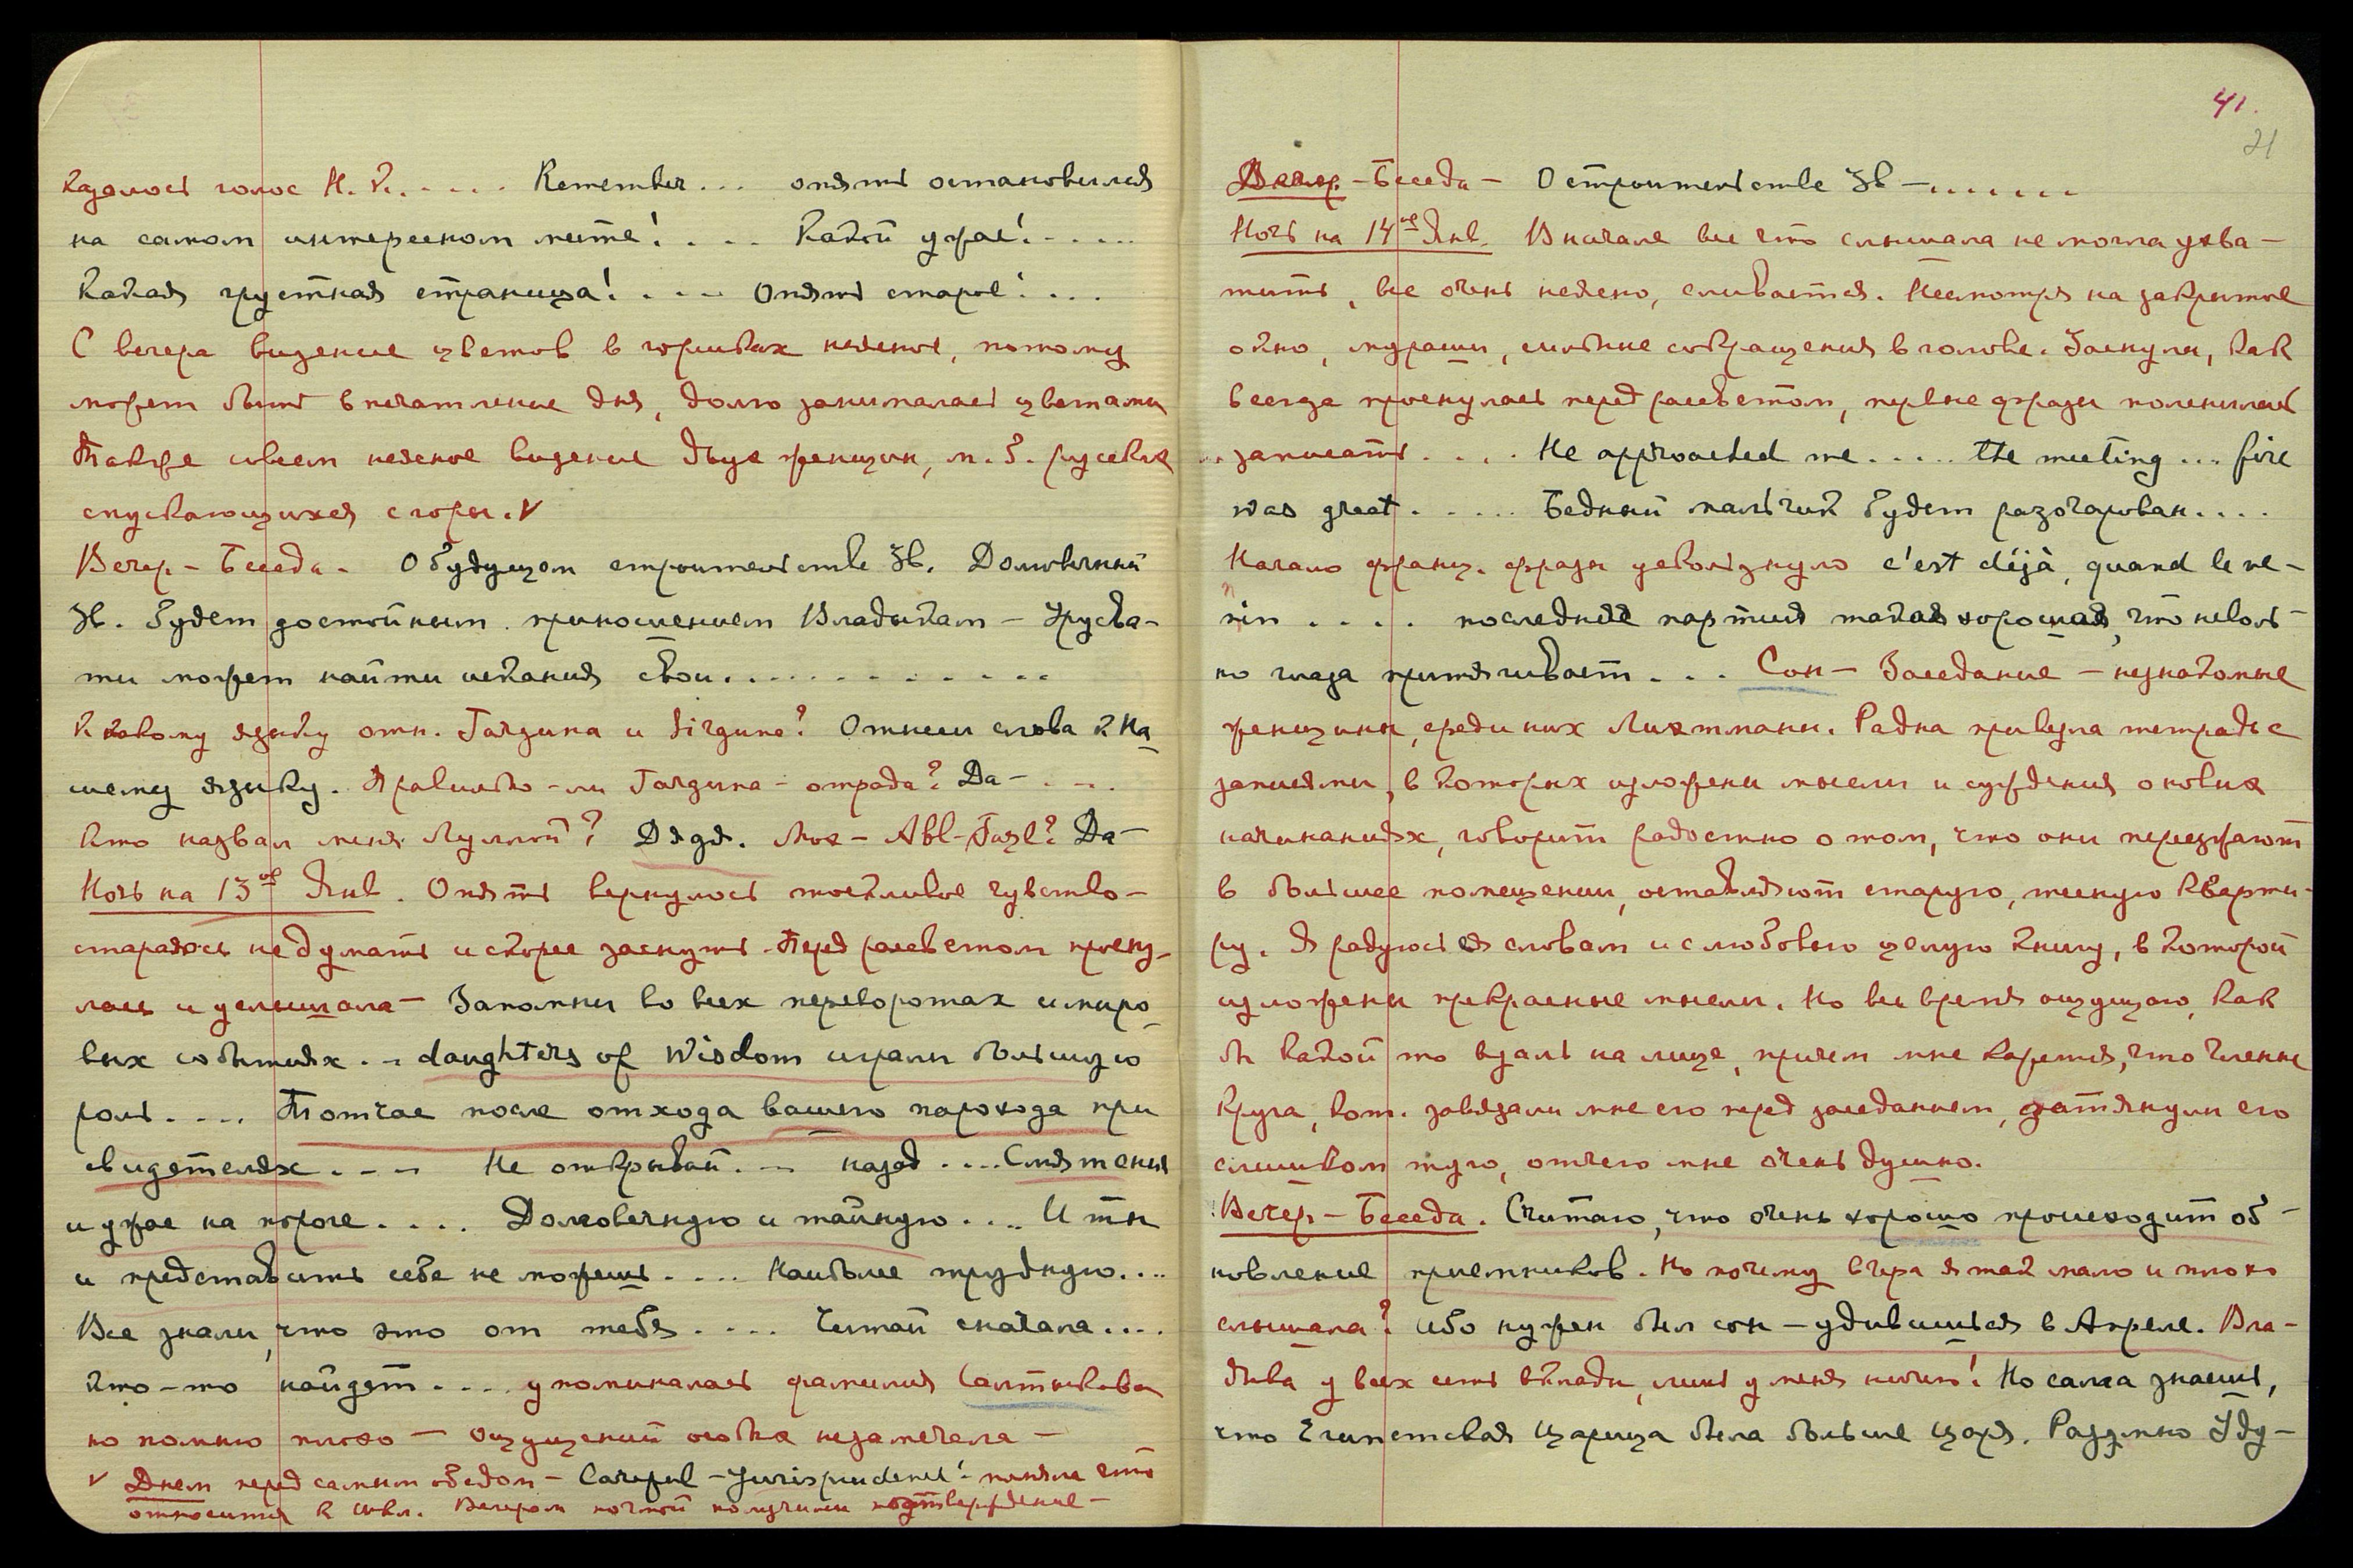 казалось голос Н. К. . . . . Remember . . . опять остановился
на самом интересном месте! . . . Какой ужас! . . . . .
Какая грустная страница! . . . Опять старое! . . .
С вечера видение цветов в горшках неясное, потому
может быть впечатление дня, долго занималась цветами
Также совсем неясное видение двух женщин, м. б. русских
спускающихся с горы. V
Вечер – Беседа – О будущем строительстве Зв. Долговечный
Зв. будет достойным приношением Владыкам – Урусва-
ти может найти искания свои. . . . . . . . . . .
К какому языку отн. Гаядина и Sirgune? Отнеси слова к На-
шему языку. Правильно-ли Гаядина – отрада? Да – . . .
Кто назвал меня Лулной? Дядя. Мох – Abl-Гизl? Да –
Ночь на 13ое Янв. Опять вернулось тоскливое чувство –
стараюсь не думать и скорее заснуть. Перед рассветом просну-
лась и услышала – Запомни во всех переворотах и миро-
вых событиях . . daughters of Wisdom играли большую
роль . . . . Тотчас после отхода вашего парохода при
свидетелях . . . Не открывай . . . назад . . . . Смятения
и ужас на пороге . . . . Долговечную и тайную . . . . И ты
и представить себе не можешь . . . . Наиболее трудную . . . .
Все знали, что это от тебя . . . . Читай сначала . . . .
кто-то найдет . . . . упоминалась фамилия Салтыкова
но помню плохо – ощущений особых не замечала –
V Днем перед самым обедом – Careful – Jurisprudence! поняла что
относится к Шкл. Вечером почтой получили подтверждение –
41.
21
Вечер – Беседа – О строительстве Зв – . . . . . . .
Ночь на 14ое Янв. Вначале все что слышала не могла ухва-
тить, все очень неясно, сливается. Несмотря на закрытое
окно, мураши, сильные сокращения в голове. Заснула, как
всегда проснулась перед рассветом, первые фразы поленилась
записать . . . . He approached me . . . . . the meeting . . . fire
was great . . . . . Бедный мальчик будет разочарован . . . .
Начало франц. фразы ускользнуло c'est déjà, quand le ve-
nin . . . . последняя партия такая хорошая, что неволь-
но глаза притягивает . . . Сон – Заседание – незнакомые
женщины, среди них Лихтманы. Радна привезла тетрадь с
записями, в которых изложены мысли и суждения о новых
начинаниях, говорит радостно о том, что они переезжают
в большее помещении, оставляют старую, тесную кварти-
ру. Я радуюсь ея словам и с любовью целую книгу, в которой
изложены прекрасные мысли. Но все время ощущаю, как
бы какой то вуаль на лице, причем мне кажется, что члены
Круга, кот. завязали мне его перед заседанием, затянули его
слишком туго, отчего мне очень душно.
Вечер – Беседа. Считаю, что очень хорошо происходит об-
новление приемников. Но почему вчера я так мало и плохо
слышала? Ибо нужен был сон – удивишься в Апреле. Вла-
дыка у всех есть вклады, лишь у меня ничего! Но сама знаешь,
что Египетская Царица была больше Царя. Раздумно Уду-